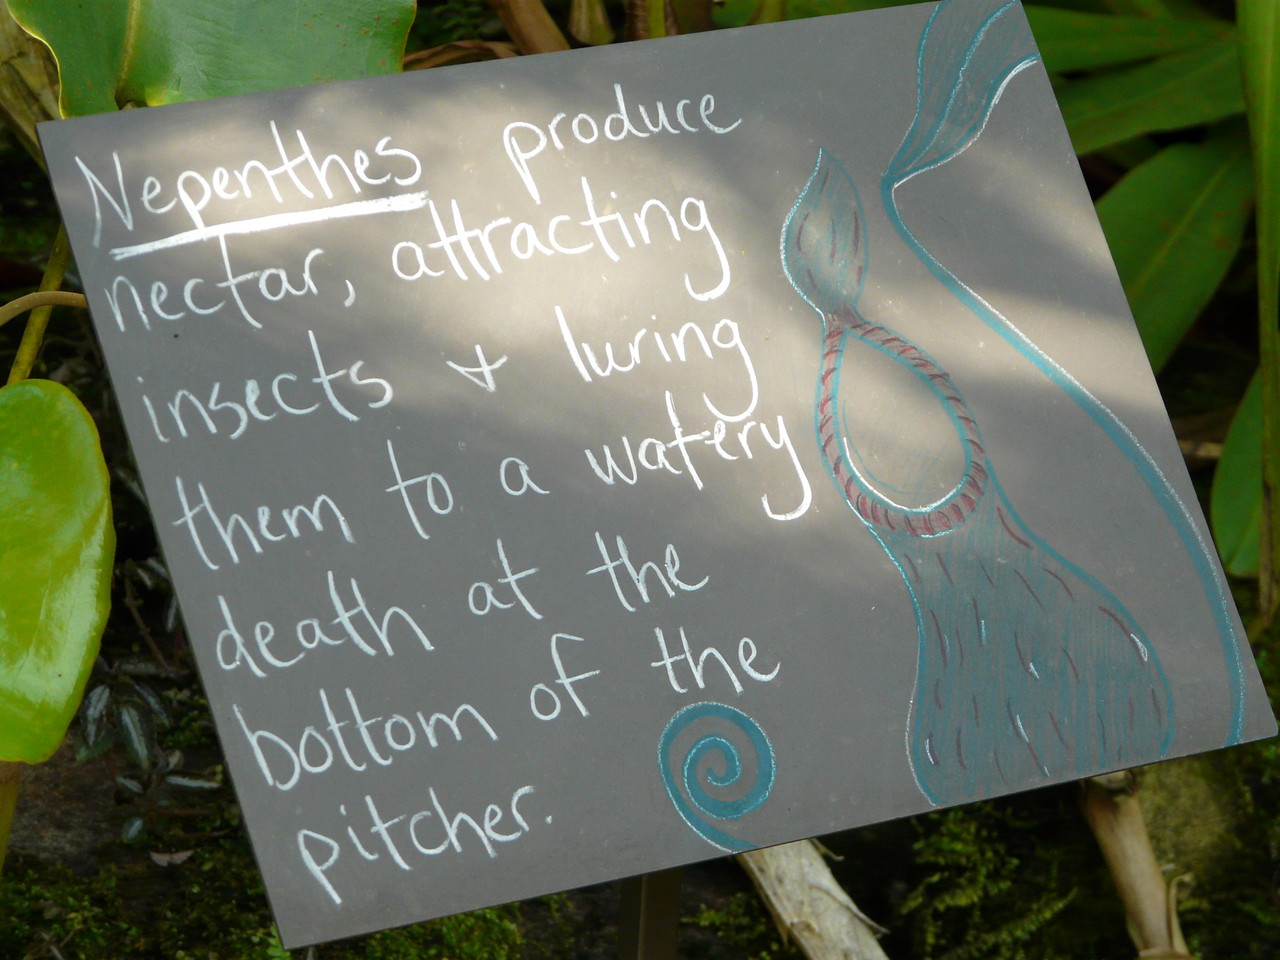 Nepenthes produce
nectar, attracting
insects + luring
them to a watery
death at the
bottom of the
pitcher.